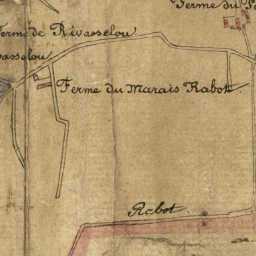 Ferme du
Ferme de Rivasselou
vasselou
Ferme du Marais Rabot
Rabot